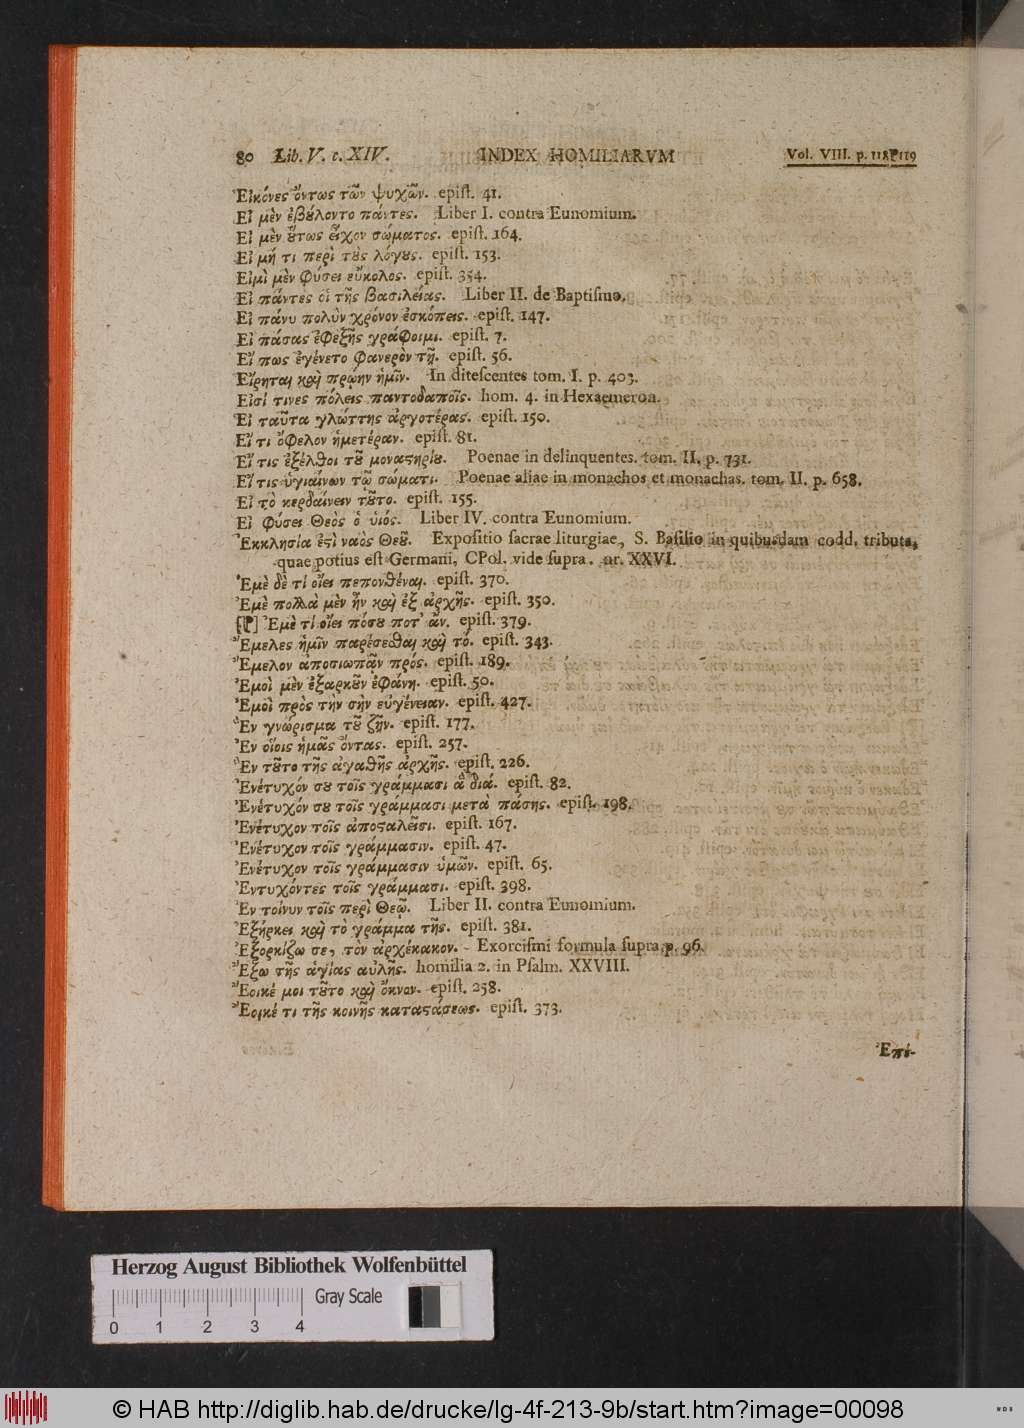 80 Lib. V. c. XIV. INDEX HOMILIARVM Vol. VIII. p. 118 119
Εἰκόνες ὄντως τῶν ψυχῶν. epiſt. 41.
Εἰ μὲν ἐβούλοντο πάντες. Liber I. contra Eunomium.
Εἰ μὲν οὕτως εἶχον σώματος. epiſt. 164.
Εἰ μή τι περὶ τοὺς λόγους. epiſt. 153.
Εἰμὶ μὲν φύσει εὔκολος. epiſt. 354.
Εἰ πάντες οἱ τῆς βασιλείας. Liber II. de Baptiſmo.
Εἰ πάνυ πολὺν χρόνον ἐσκόπεις. epiſt. 147.
Εἰ πάσας ἐφεξῆς γράφοιμι. epiſt. 7.
Εἴ πως ἐγένετο φανερὸν τῇ. epiſt. 56.
Εἴρηται καὶ πρώην ἡμῖν. In diteſcentes tom. I. p. 403.
Εἰσί τινες πόλεις παντοδαποῖς. hom. 4. in Hexaemeron.
Εἰ ταῦτα γλώττης ἀργοτέρας. epiſt. 150.
Εἴ τι ὄφελον ἡμετέραν. epiſt. 81.
Εἴ τις ἐξέλθοι τοῦ μοναστηρίου. Poenae in delinquentes. tom. II. p. 731.
Εἴ τις ὑγιαίνων τῷ σώματι. Poenae aliae in monachos et monachas. tom. II. p. 658.
Εἰ τὸ κερδαίνειν τοῦτο. epiſt. 155.
Εἰ φύσει Θεὸς ὁ υἱός. Liber IV. contra Eunomium.
Ἐκκλησία ἐστὶ ναὸς Θεοῦ. Expoſitio ſacrae liturgiae, S. Baſilio in quibusdam codd. tributa,
quae potius eſt Germani, CPol. vide ſupra. nr. XXVI.
Ἐμὲ δὲ τί οἴει πεπονθέναι. epiſt. 370.
Ἐμὲ πολλὰ μὲν ἦν καὶ ἐξ ἀρχῆς. epiſt. 350.
Ἐμὲ τί οἴει πόσου ποτ' ἄν. epiſt. 379.
Ἔμελες ἡμῖν παρέσεσθαι καὶ τό. epiſt. 343.
Ἔμελον ἀποσιωπᾶν πρός. epiſt. 189.
Ἐμοὶ μὲν ἐξαρκοῦν ἐφάνη. epiſt. 50.
Ἐμοὶ πρὸς τὴν σὴν εὐγένειαν. epiſt. 427.
Ἓν γνώρισμα τοῦ ζῆν. epiſt. 177.
Ἐν οἵοις ἡμᾶς ὄντας. epiſt. 257.
Ἓν τοῦτο τῆς ἀγαθῆς ἀρχῆς. epiſt. 226.
Ἐνέτυχόν σου τοῖς γράμμασι ἃ διά. epiſt. 82.
Ἐνέτυχόν σου τοῖς γράμμασι μετὰ πάσης. epiſt. 198.
Ἐνέτυχον τοῖς ἀποσταλεῖσι. epiſt. 167.
Ἐνέτυχον τοῖς γράμμασιν. epiſt. 47.
Ἐνέτυχον τοῖς γράμμασιν ὑμῶν. epiſt. 65.
Ἐντυχόντες τοῖς γράμμασι. epiſt. 398.
Ἐν τοίνυν τοῖς περὶ Θεῷ. Liber II. contra Eunomium.
Ἐξήρκει καὶ τὸ γράμμα τῆς. epiſt. 381.
Ἐξορκίζω σε, τὸν ἀρχέκακον. Exorciſmi formula ſupra p. 96.
Ἔξω τῆς ἁγίας αὐλῆς. homilia 2. in Pſalm. XXVIII.
Ἔοικέ μοι τοῦτο καὶ ὄκνον. epiſt. 258.
Ἔοικέ τι τῆς κοινῆς καταστάσεως. epiſt. 373.
Ἐπέ-
Herzog August Bibliothek Wolfenbüttel
Gray Scale
0 1 2 3 4
© HAB http://diglib.hab.de/drucke/lg-4f-213-9b/start.htm?image=00098